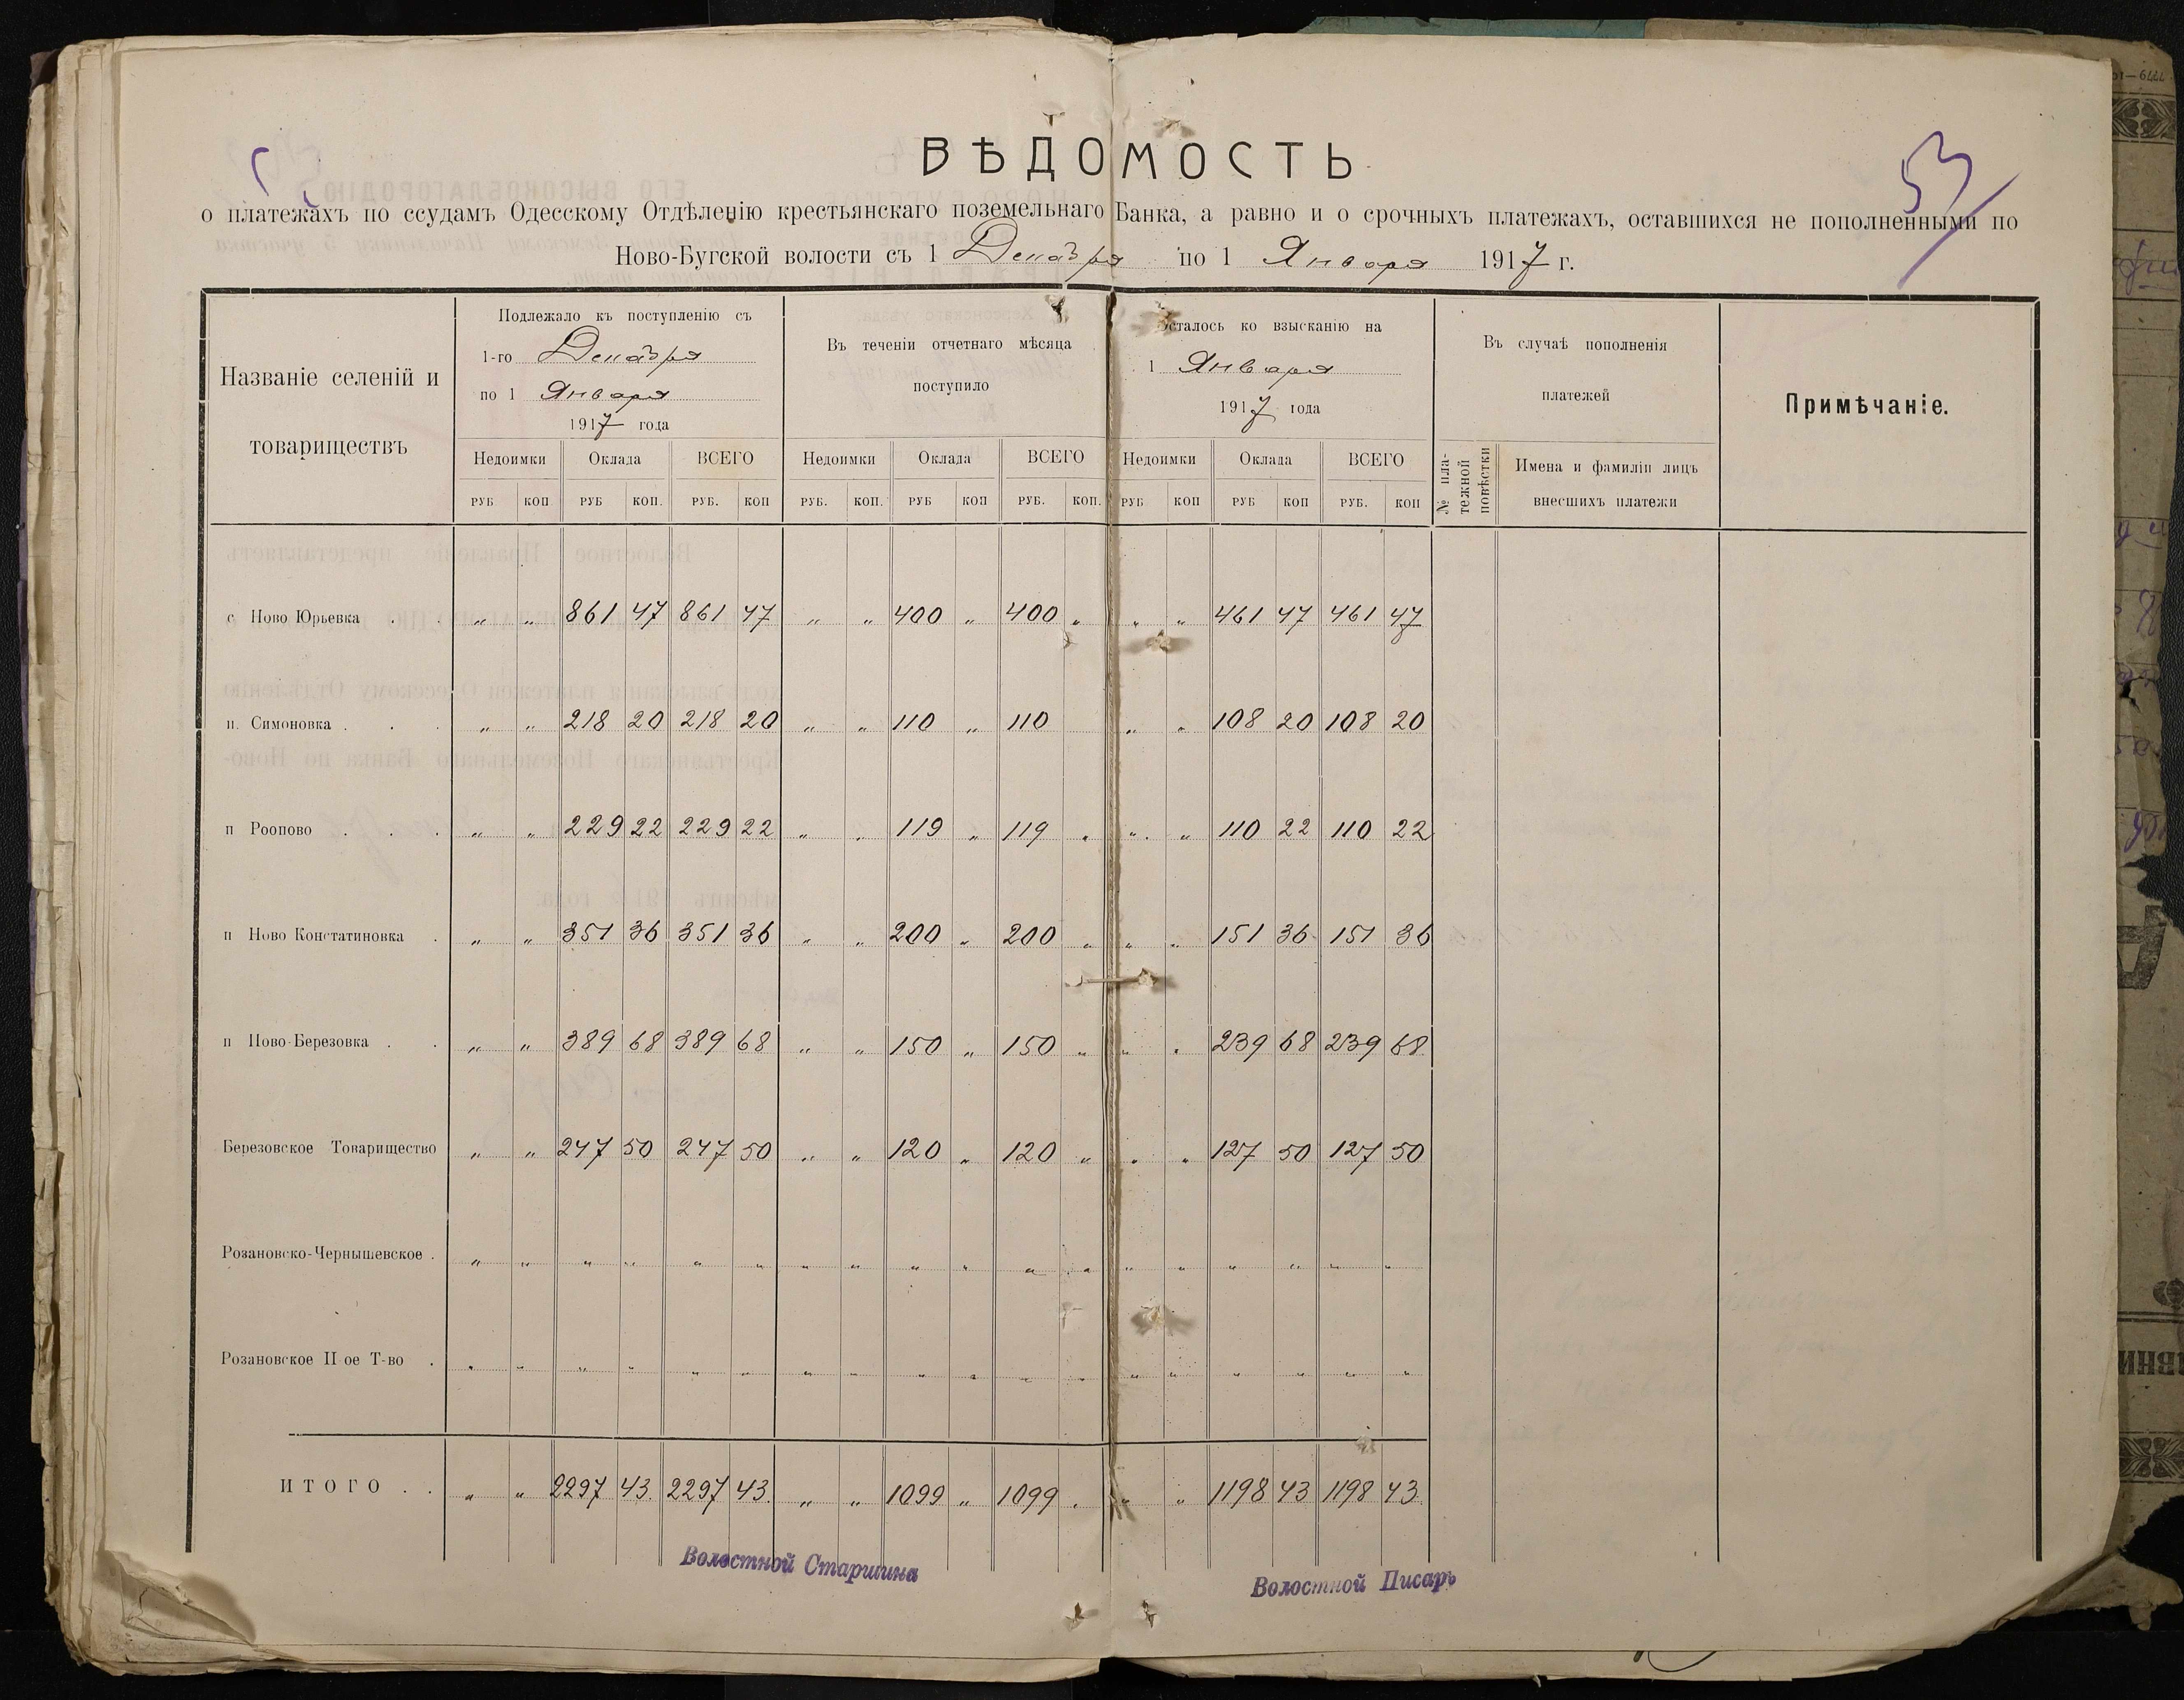 ВѢДОМОСТЬ
53
о платежахъ по ссудамъ Одесскому Отдѣленію крестьянскаго поземельнаго Банка, а равно и о срочныхъ платежахъ, оставшихся не пополненными по
Ново-Бугской волости съ 1 Декабря по 1 Января 1917 г.
Названіе селеній и товариществъ
Подлежало къ поступленію съ
1-го Декабря
по 1 Января
1917 года
Въ теченіи отчетнаго мѣсяца
поступило
сталось ко взысканію на
1 Января
1917 года
Въ случаѣ пополненія
платежей
Примѣчаніе.
Недоимки Оклада ВСЕГО Недоимки Оклада ВСЕГО Недоимки Оклада ВСЕГО
№ пла-
тежной
повѣстки
Имена и фамиліи лицъ
внесшихъ платежи
РУБ КОП РУБ КОП. РУБ. КОП РУБ. КОП. РУБ КОП РУБ. КОП. РУБ КОП РУБ КОП РУБ. КОП
с Ново Юрьевка . . „ „ 861 47 861 47 „ „ 400 „ 400 „ „ „ 461 47 461 47
п. Симоновка . . . „ „ 218 20 218 20 „ „ 110 „ 110 „ „ 108 20 108 20
п Роопово . . . „ „ 229 22 229 22 „ „ 119 „ 119 „ „ „ 110 22 110 22
п Ново Констатиновка . „ „ 351 36 351 36 „ „ 200 „ 200 „ „ „ 151 36 151 36
п Ново-Березовка . . „ „ 389 68 389 68 „ „ 150 „ 150 „ „ „ 239 68 239 68
Березовское Товарищество „ „ 247 50 247 50 „ „ 120 „ 120 „ „ „ 127 50 127 50
Розановско-Чернышевское . „ „ „ „ „ „ „ „ „ „ „ „ „ „ „ „ „ „
Розановское II ое Т-во . „ „ „ „ „ „ „ „ „ „ „ „ „ „ „ „ „ „
ИТОГО . . „ „ 2297 43 2297 43 „ „ 1099 „ 1099 „ „ „ 1198 43 1198 43
Волостной Старшина
Волостной Писарь